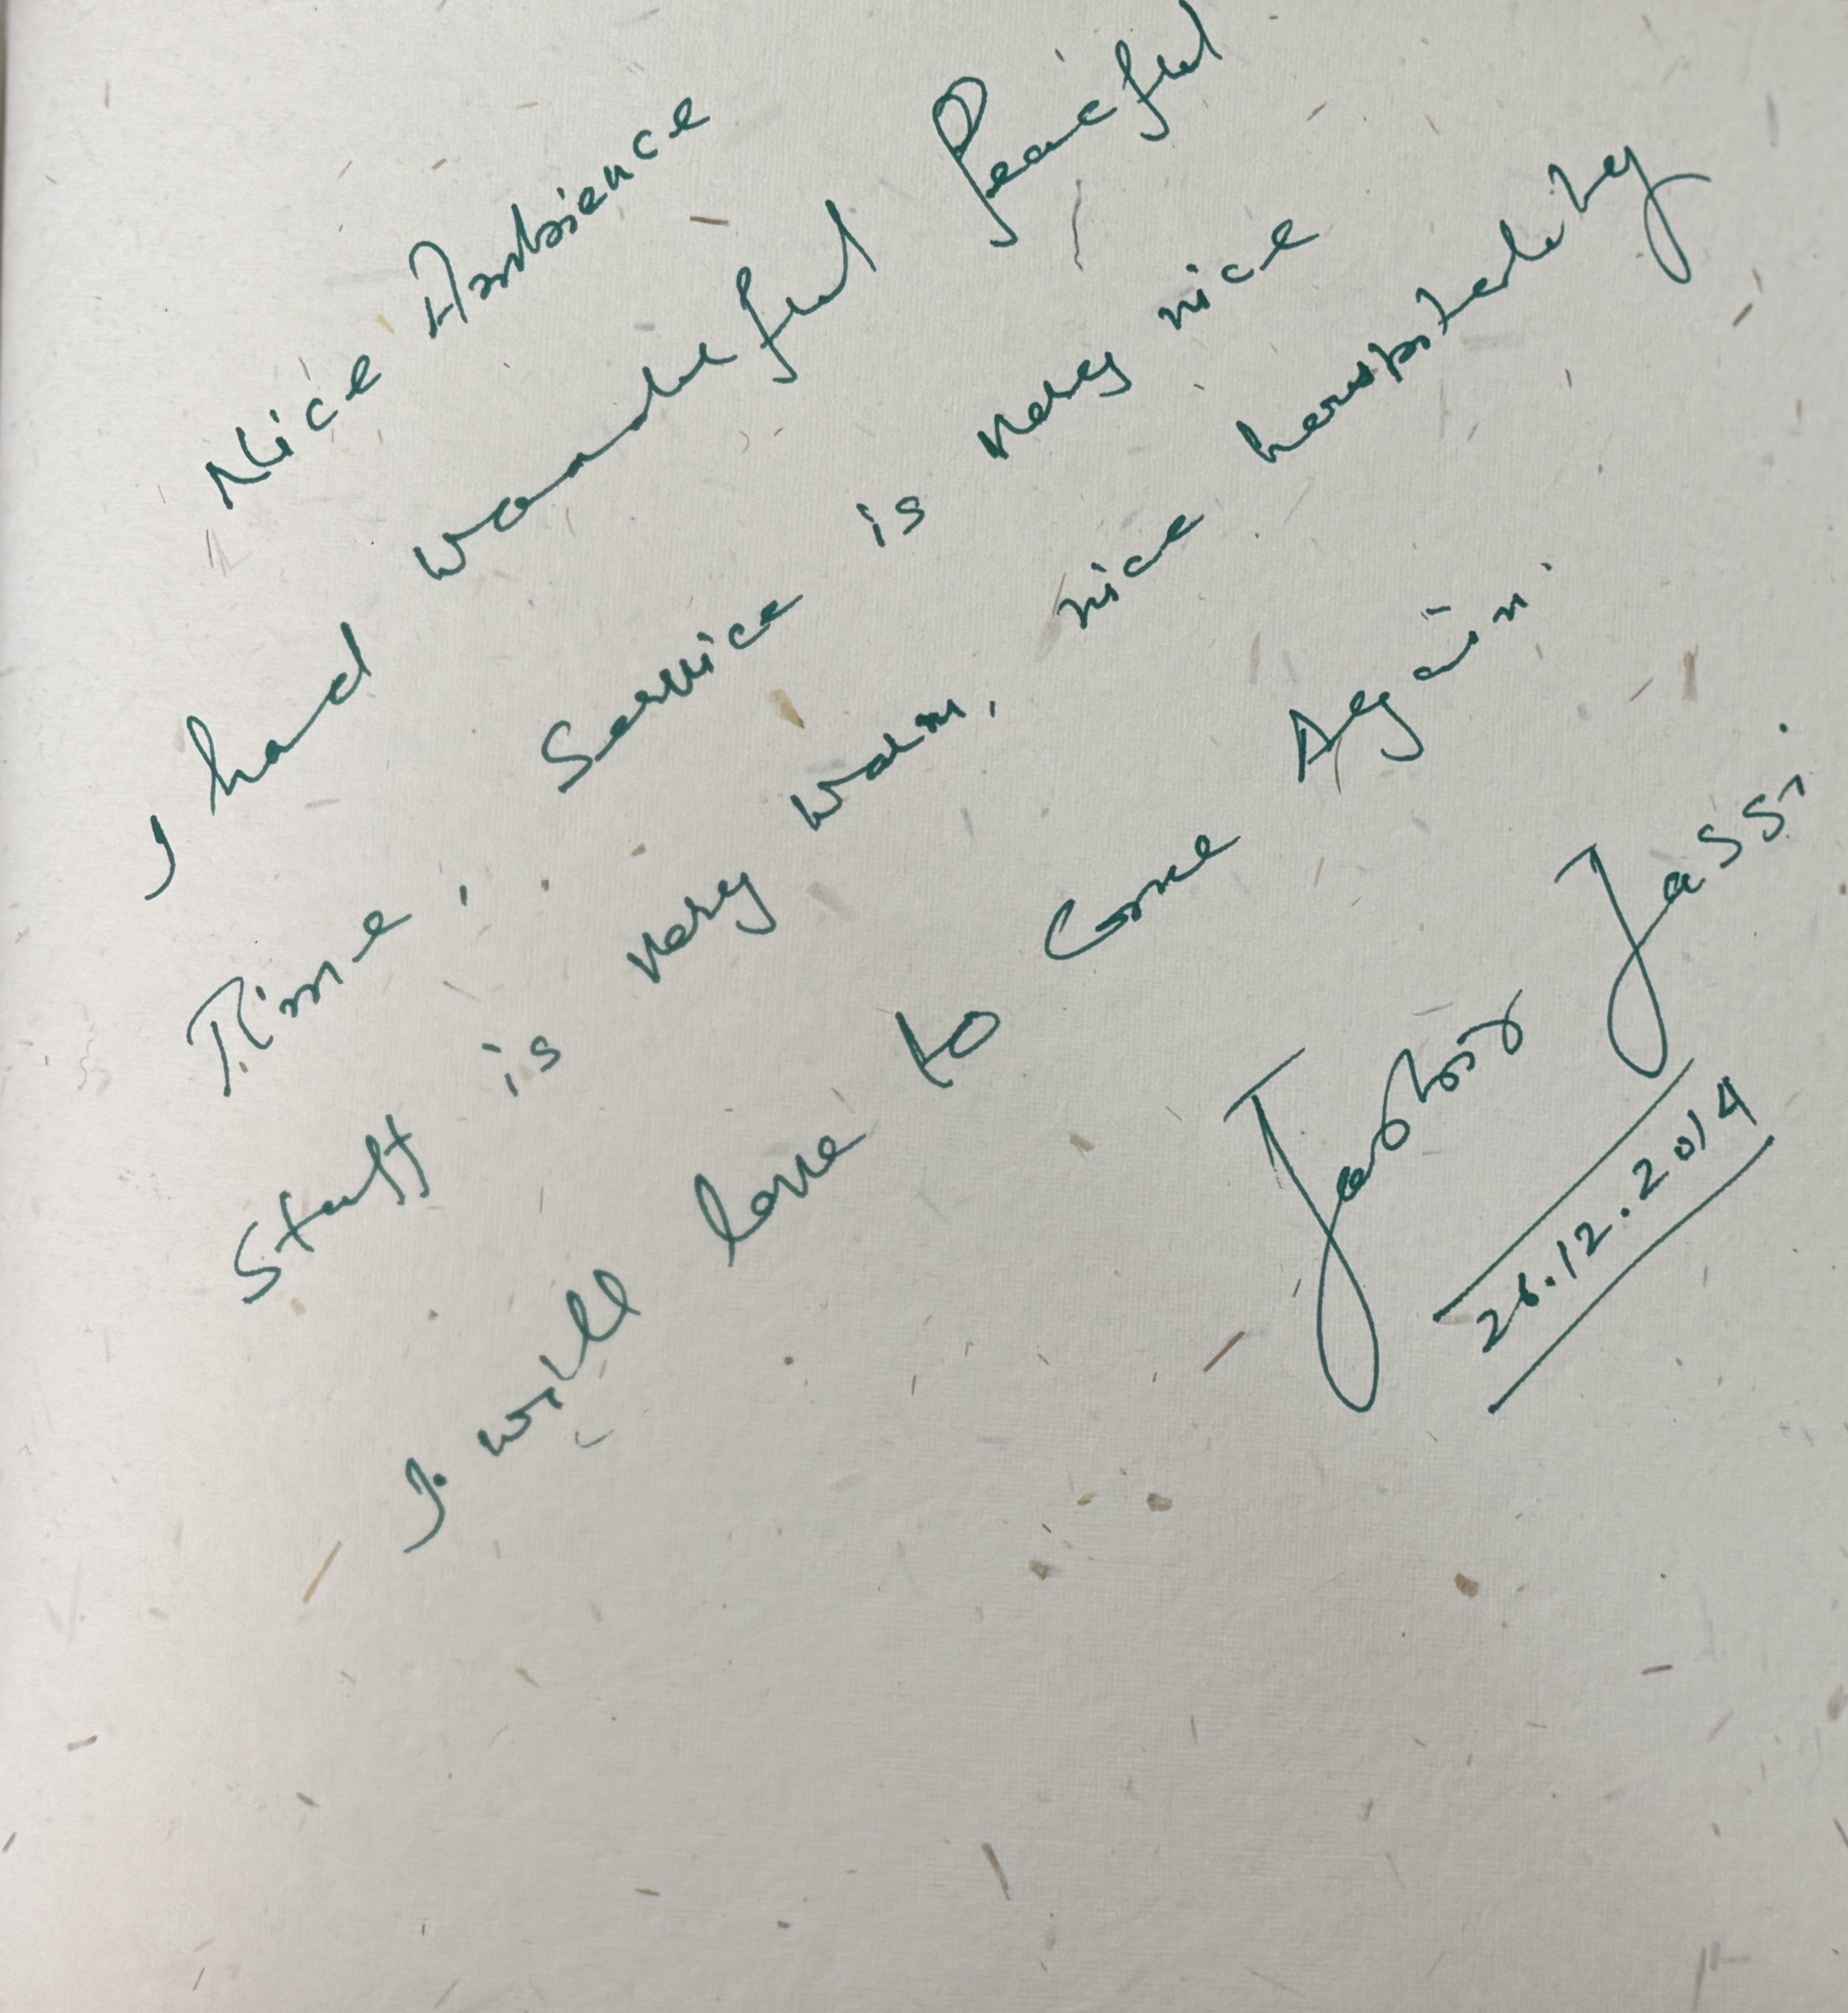 Nice Ambience
I had wondeful Peacful
Time, Service is very nice
Staff is very warm, nice hospitality
I will love to Come Again.
Jasbir Jassi
26.12.2014